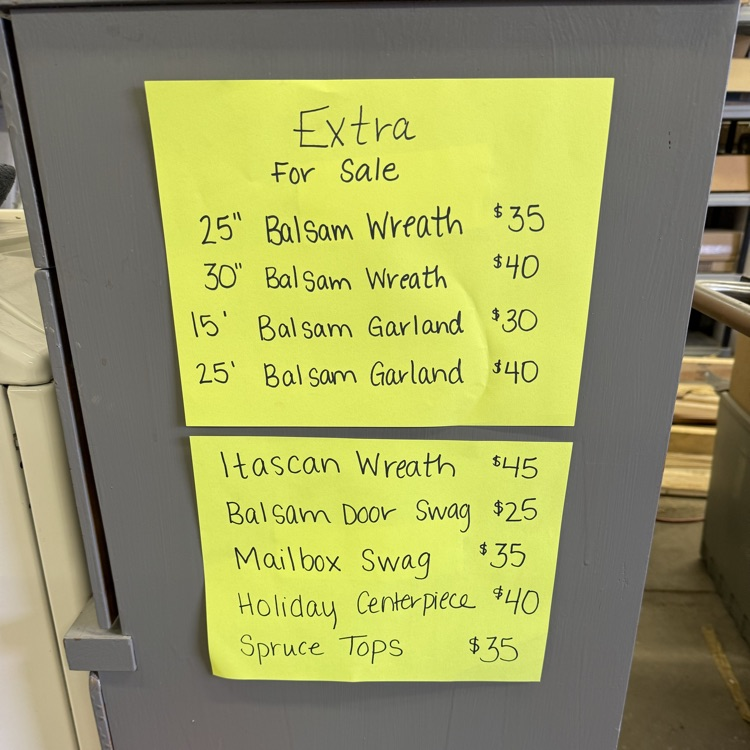 Extra
For Sale
25" Balsam Wreath $35
30" Balsam Wreath $40
15' Balsam Garland $30
25' Balsam Garland $40
Itascan Wreath $45
Balsam Door Swag $25
Mailbox Swag $35
Holiday Centerpiece $40
Spruce Tops $35